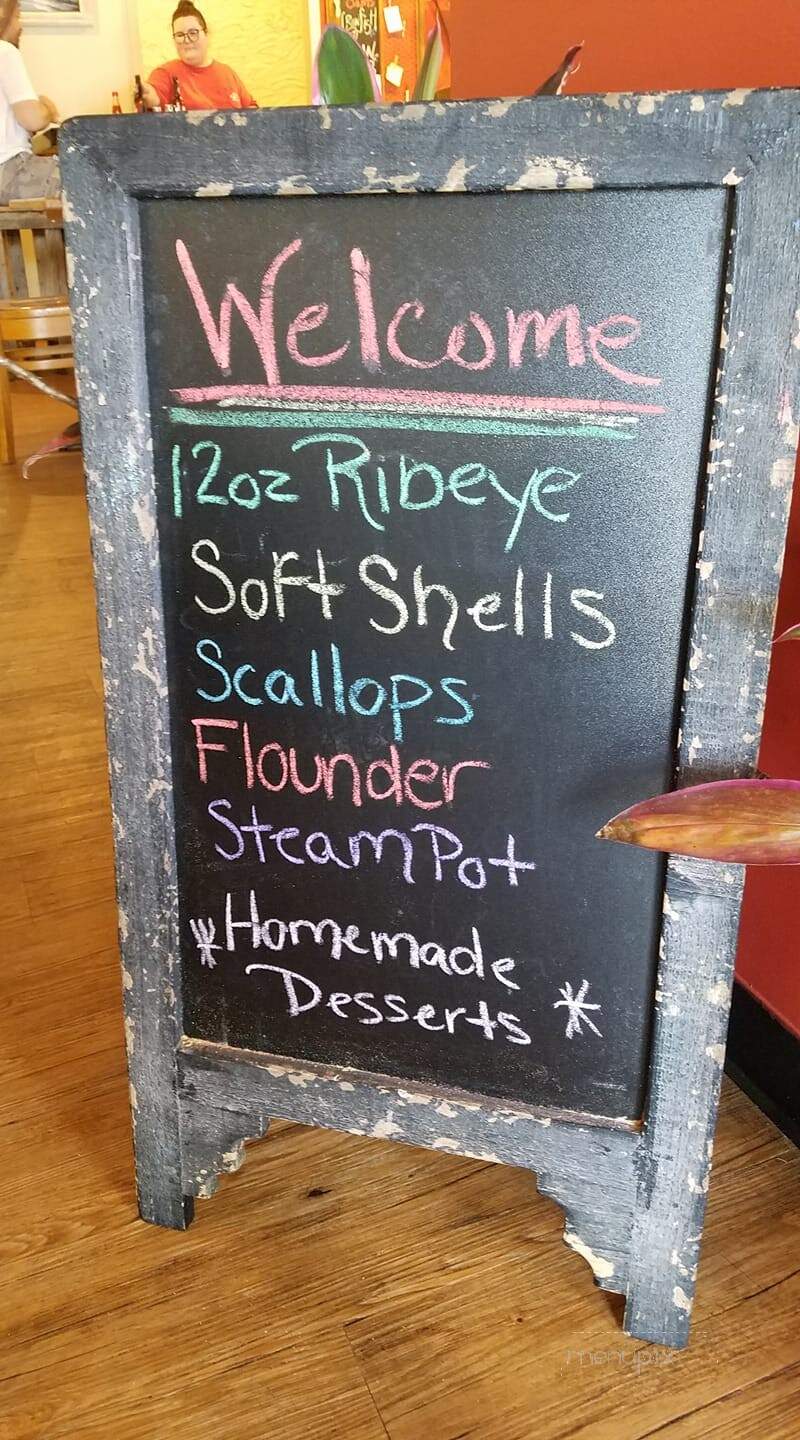 Welcome
12oz Ribeye
Soft Shells
Scallops
Flounder
Steam Pot
*Homemade
Desserts *
menupix